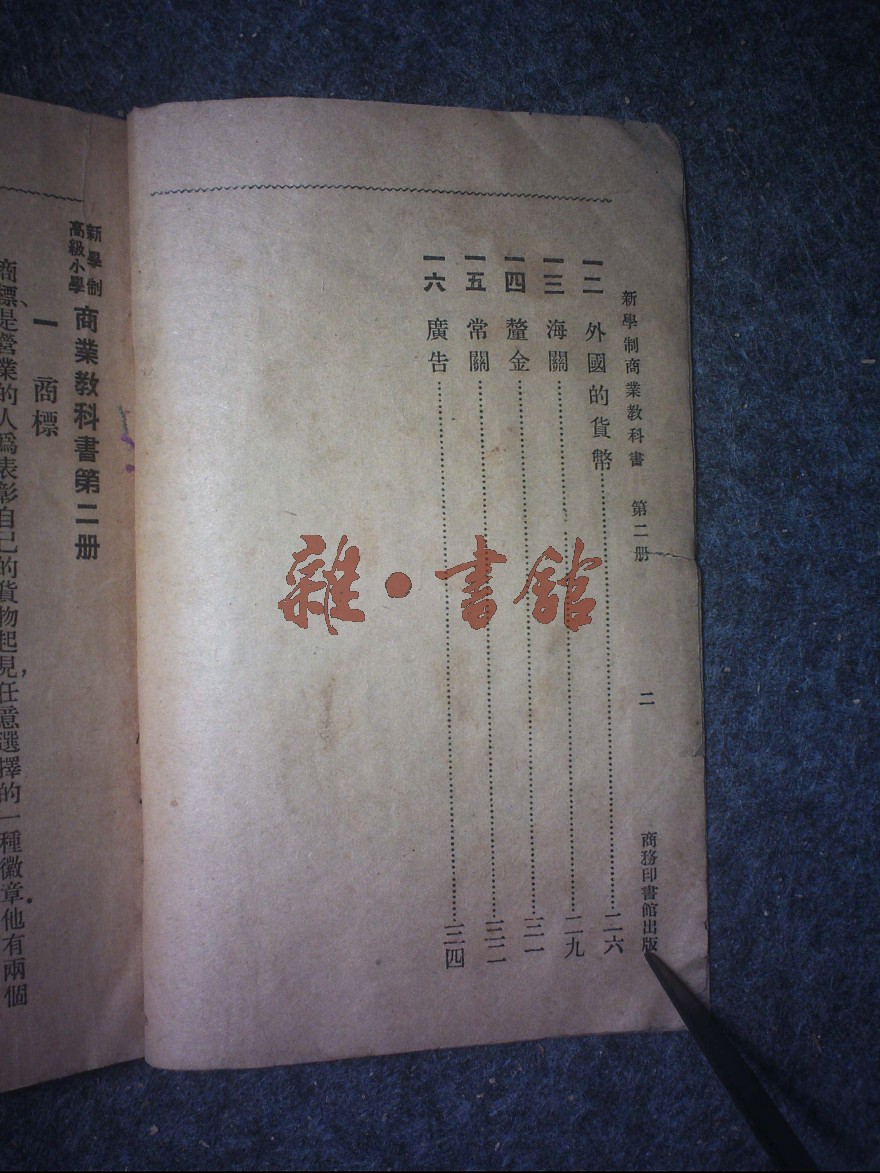 新學制商業教科書 第二册 二 商務印書館出版
一二 外國的貨幣 二六
一三 海關 二九
一四 釐金 三一
一五 常關 三二
一六 廣告 三四
雜·書館
新學制
高級小學
商業教科書第二册
一 商標
商標、是營業的人爲表彰自己的貨物起見,任意選擇的一種徽章.他有兩個